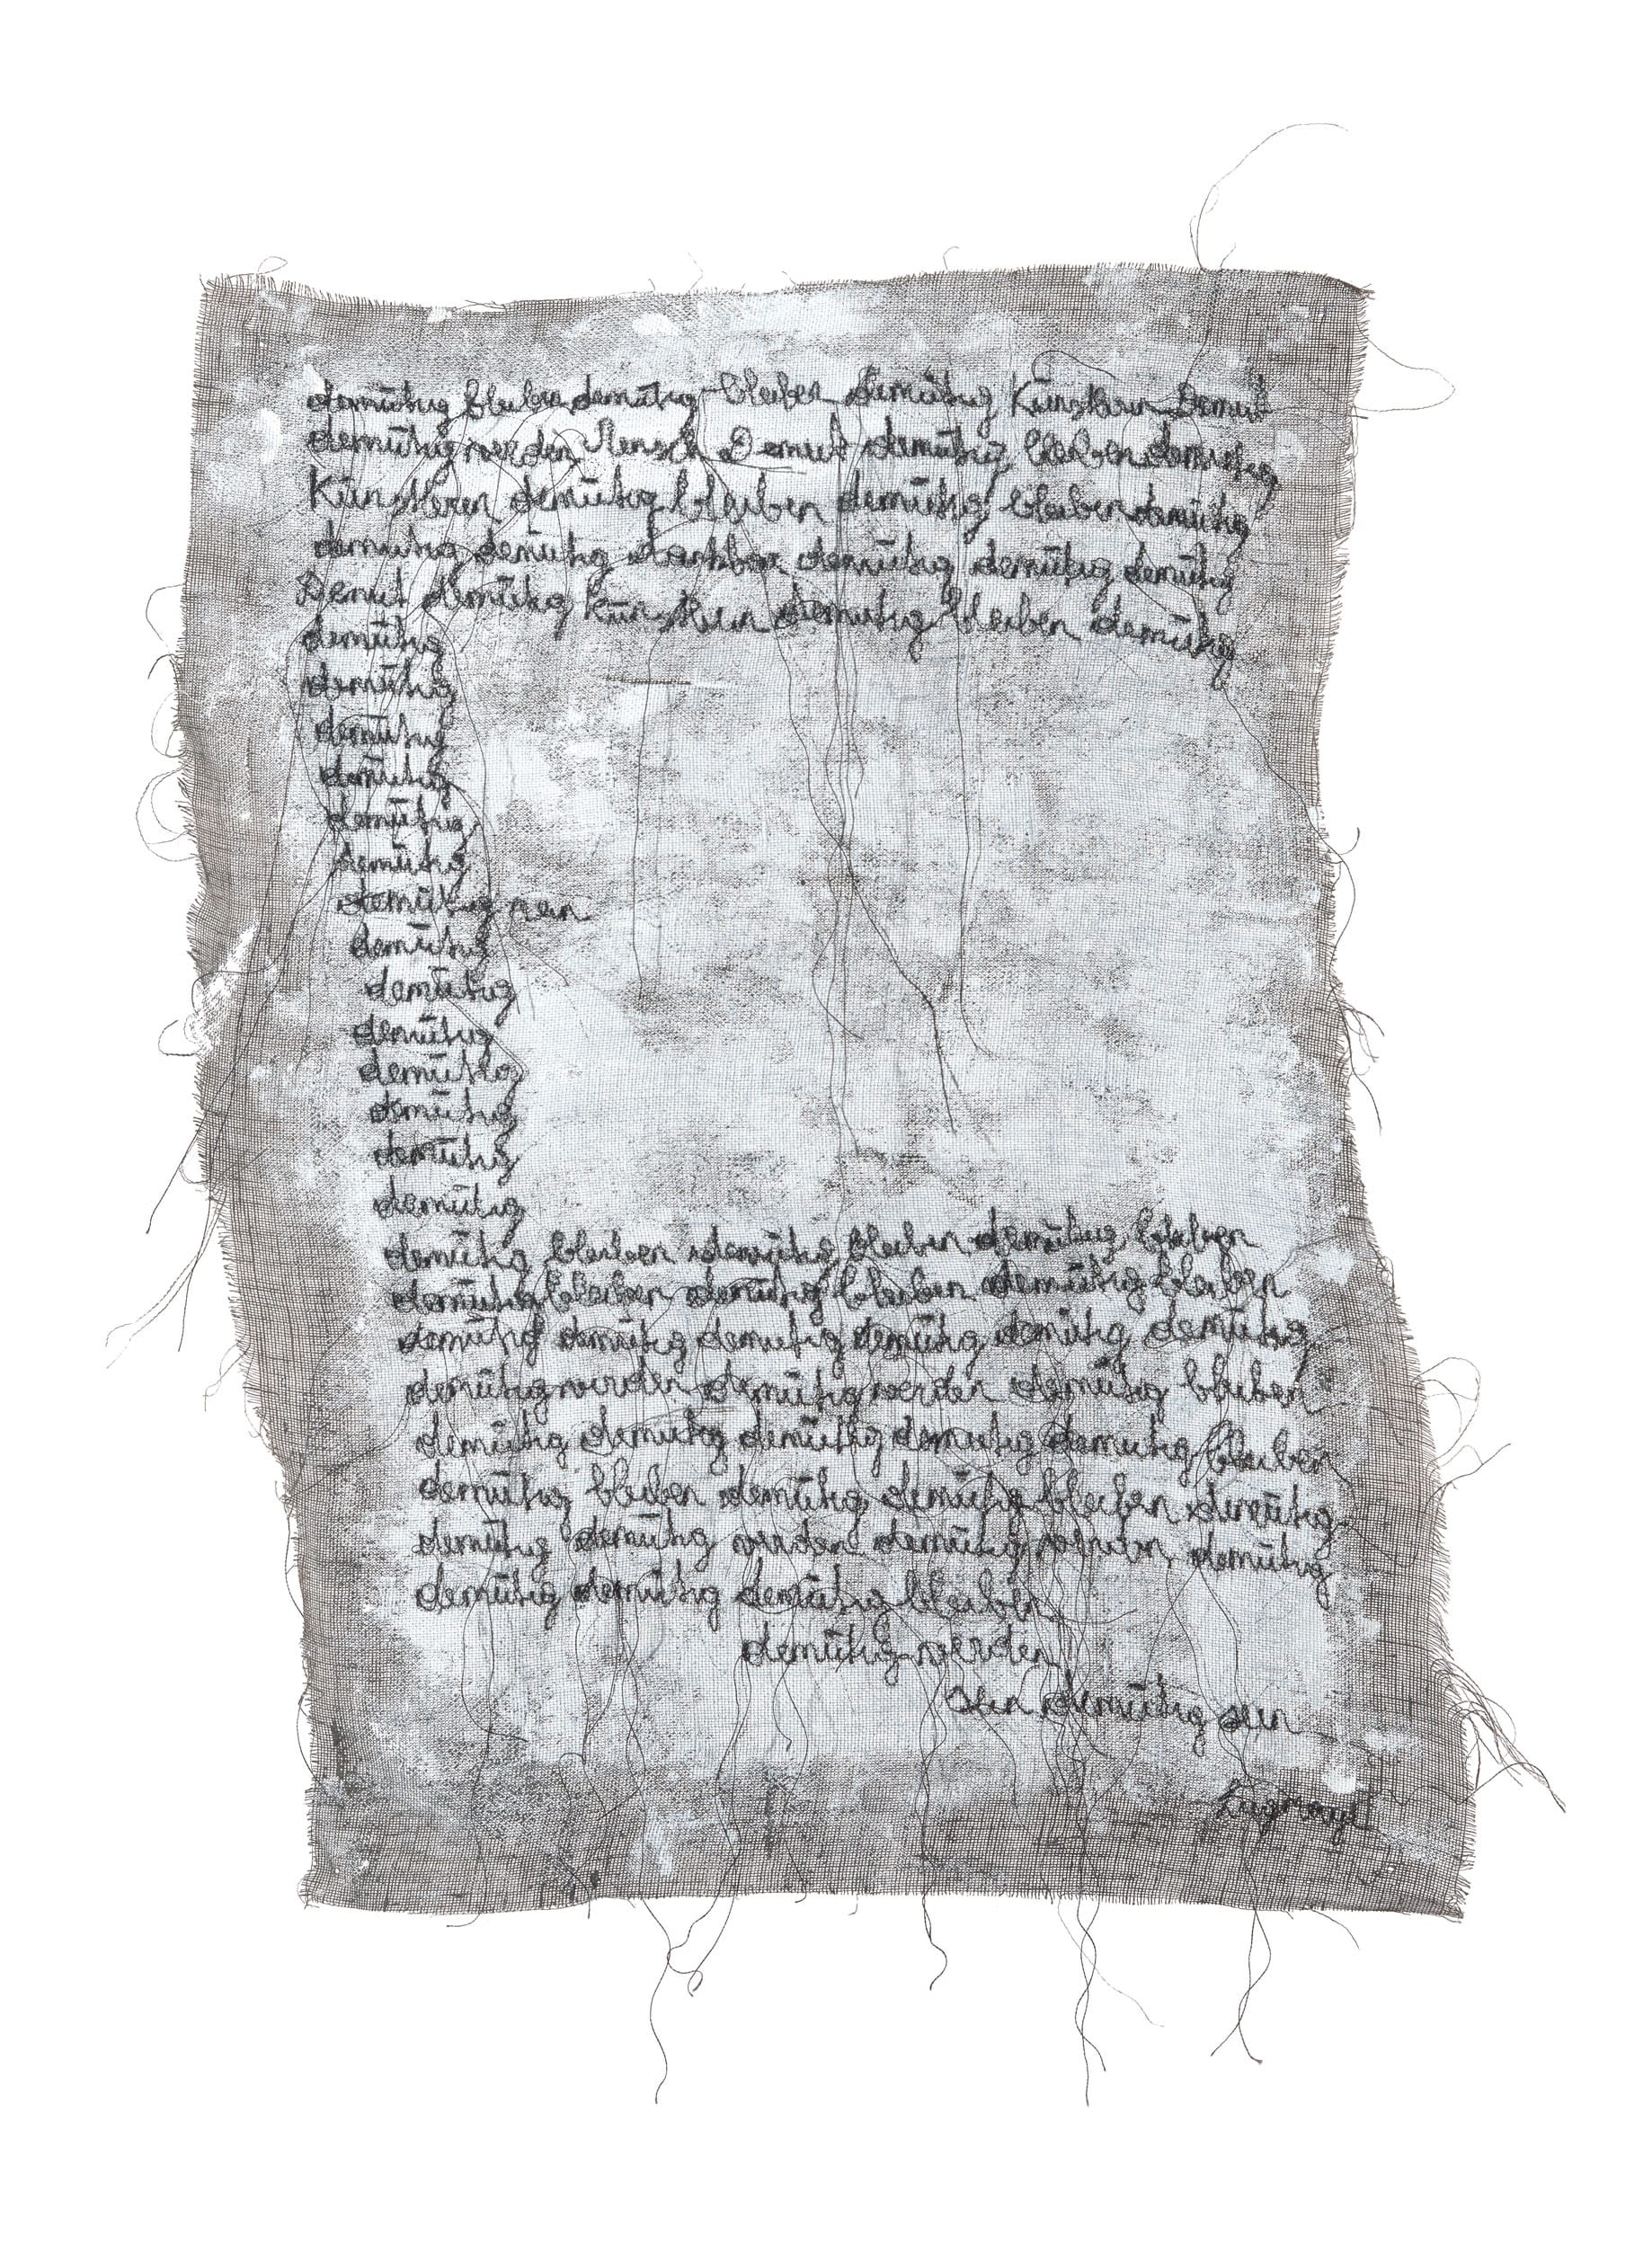 demütig bleiben demütig bleiben demütig Künstlerin Demut
demütig werden Mensch Demut demütig bleiben demütig
Künstlerin demütig bleiben demütig bleiben demütig
demütig demütig dankbar demütig demütig demütig
Demut demütig Künstlerin demütig bleiben demütig
demütig
demütig
demütig
demütig
demütig
demütig
demütig sein
demütig
demütig
demütig
demütig
demütig
demütig
demütig
demütig bleiben demütig bleiben demütig bleiben
demütig bleiben demütig bleiben demütig bleiben
demütig demütig demütig demütig demütig demütig
demütig werden demütig werden demütig bleiben
demütig demütig demütig demütig demütig bleiben
demütig bleiben demütig demütig bleiben demütig
demütig demütig werden demütig werden demütig
demütig demütig demütig bleiben
demütig werden
sein demütig sein